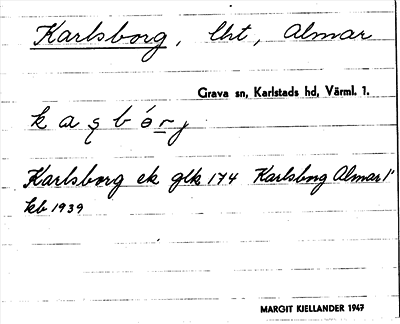 Karlsborg, lht, Almar
Grava sn, Karlstads hd, Värml. 1.
Karlsborg ek glk 174 Karlsborg Almar 1"
kb 1939
MARGIT KJELLANDER 1947